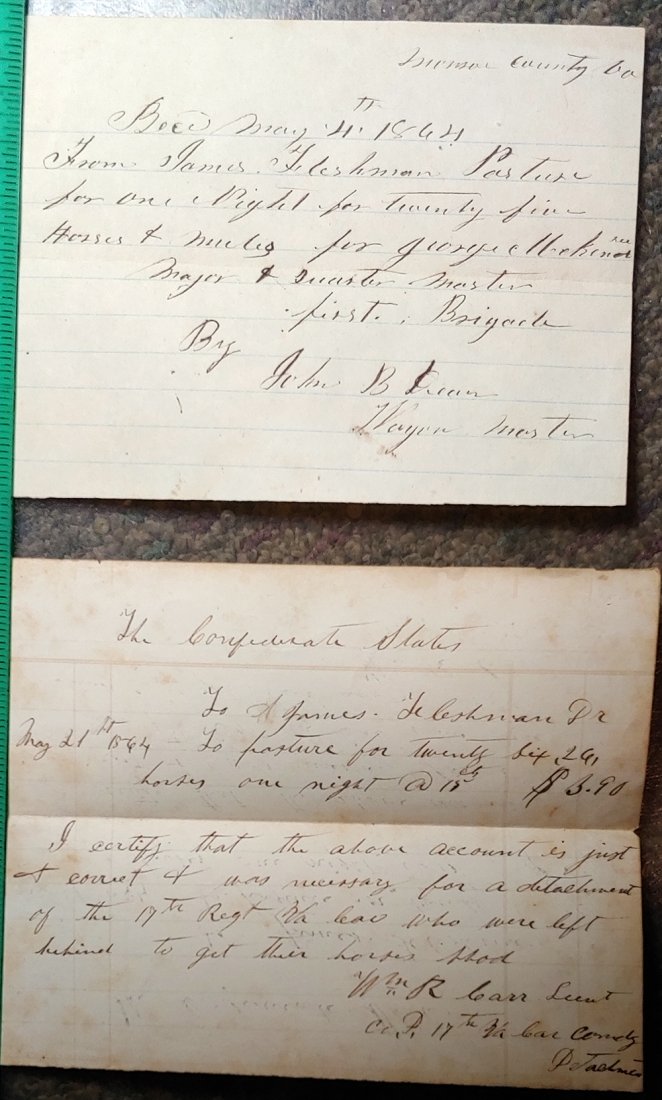 Monroe County Va
Recd May 4th 1864
From James Fleshman Pasture
for one Night for twenty five
Horses & mules for George McKendree
Major & Quarter Master
first Brigade
By
John B
Wagon Master
The Confederate States
To James Fleshman Dr
May 21th 1864 To pasture for twenty six, 26,
horses one night @ 15cts $3.90
I certify that the above account is just
& correct & was necessary for a detachment
of the 17th Regt Va Cav who were left
behind to get their horses shod
Wm R Carr Lieut
Co 17th Va Cav Comdg
Detachment